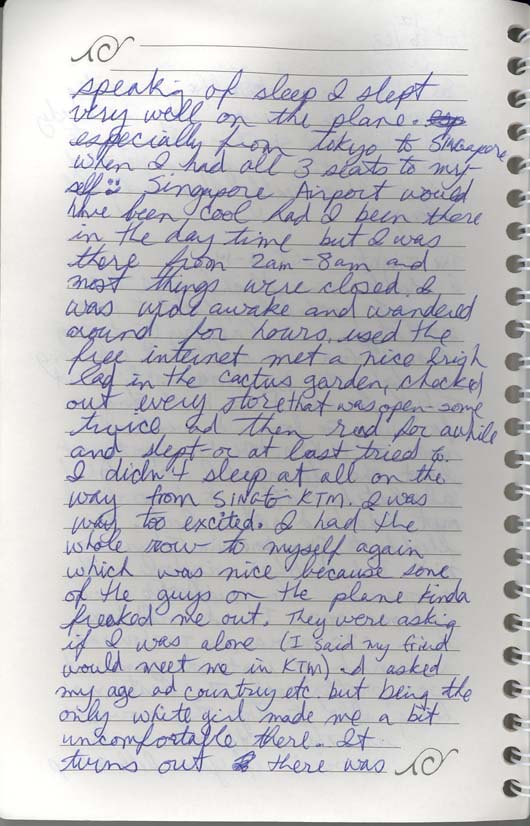 speaking of sleep I slept
very well on the plane. esp
especially from tokyo to Singapore
when I had all 3 seats to my-
self :) Singapore Airport would
have been cool had I been there
in the day time but I was
there from 2am - 8am and
most things were closed. I
was wide awake and wandered
around for hours, used the
free internet met a nice
lad in the cactus garden, checked
out every store that was open - some
twice ad then read for awhile
and slept - or at last tried to.
I didn't sleep at all on the
way from to KTM. I was
way too excited. I had the
whole row to myself again
which was nice because some
of the guys on the plane kinda
freaked me out. They were asking
if I was alone (I said my friend
would meet me in KTM) asked
my age ad country etc. but being the
only white girl made me a bit
uncomfortable there. It
turns out there was